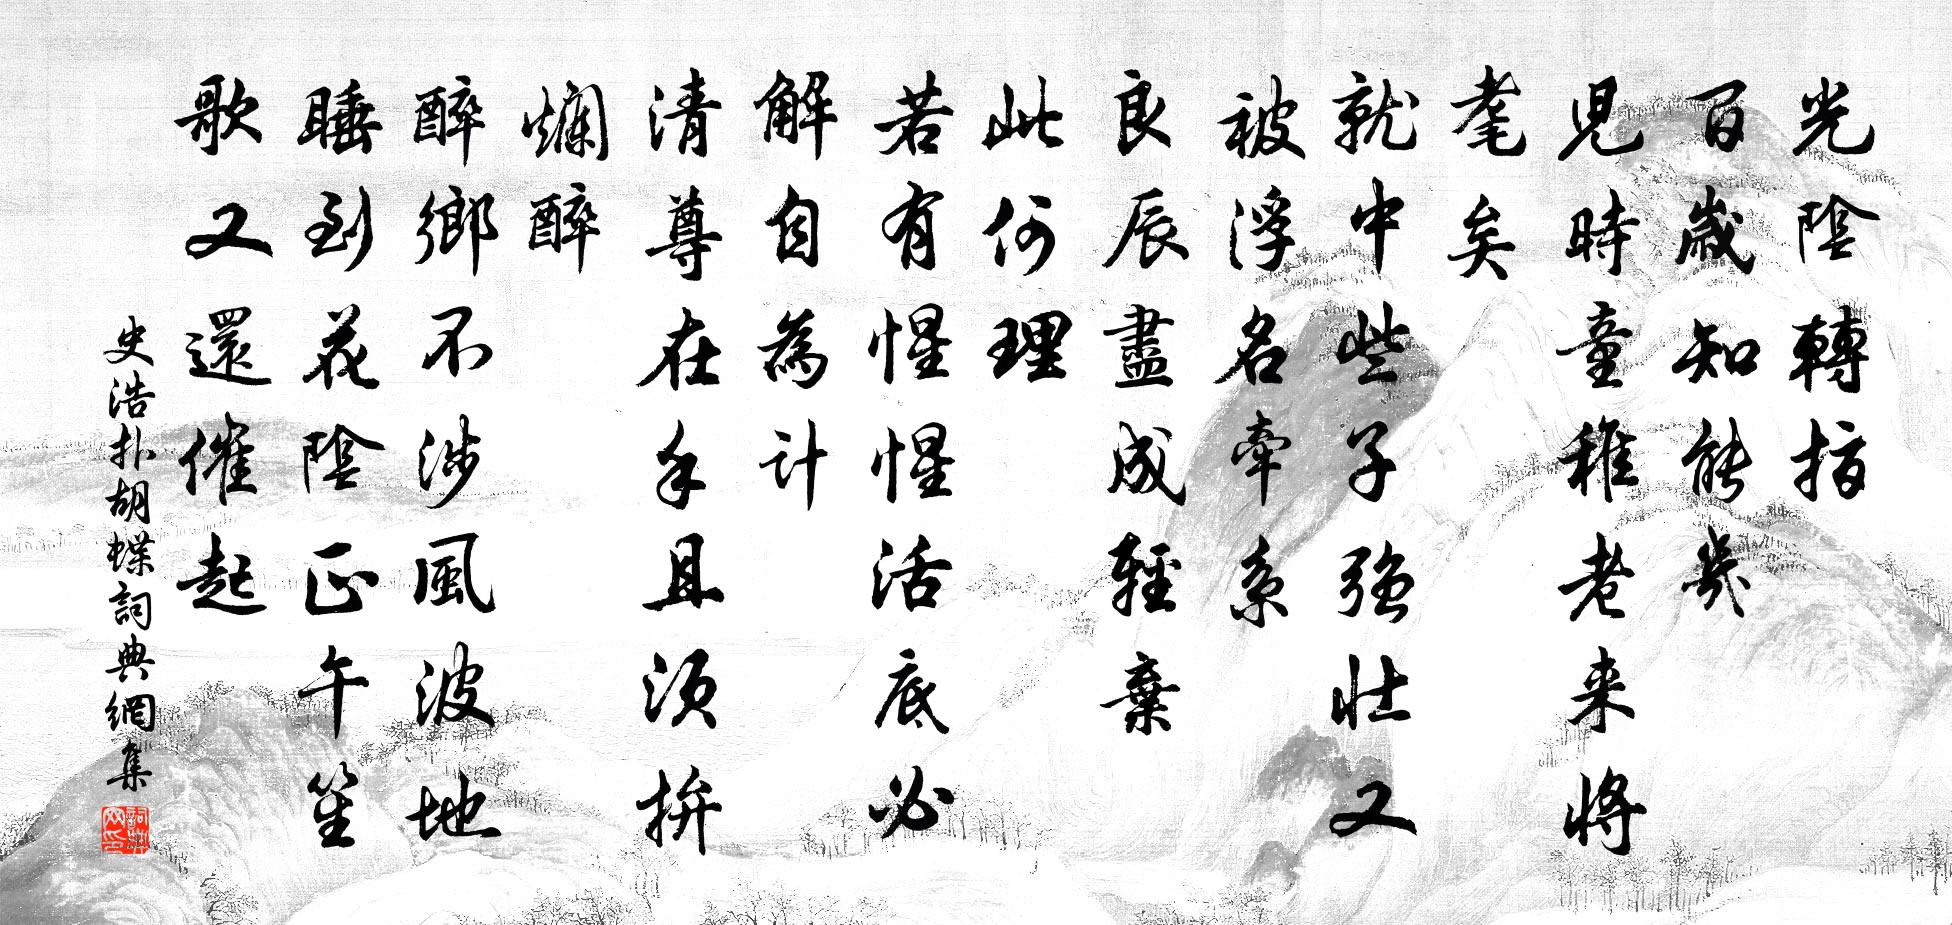 光陰轉指
百歲知能幾
兒時童稚老来將
耄矣
就中些子強壯又
被浮名牽系
良辰盡成輕棄
此何理
若有惺惺活底必
解自為計
清尊在手且須拚
爛醉
醉鄉不涉風波地
睡到花陰正午笙
歌又還催起
史浩扑胡蝶詞典網集